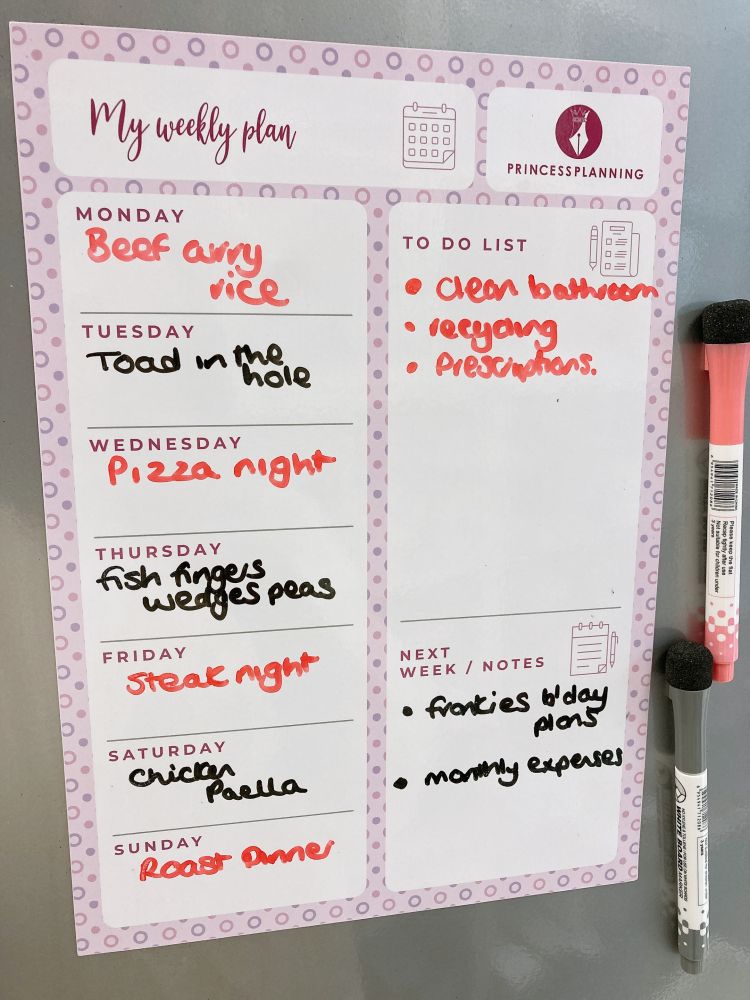 My weekly plan
PRINCESSPLANNING
MONDAY
Beef curry
rice
TUESDAY
Toad in the
hole
WEDNESDAY
Pizza night
THURSDAY
fish fingers
wedges peas
FRIDAY
Steak night
SATURDAY
Chicken
Paella
SUNDAY
Roast Dinner
TO DO LIST
• Clean bathroom
• recycling
• Prescriptions.
NEXT
WEEK / NOTES
• frankies b'day
plans
• monthly expenses
Please keep the flat
Recap tightly after use
Not suitable for children under
3 years
WHITE BOARD MARKER